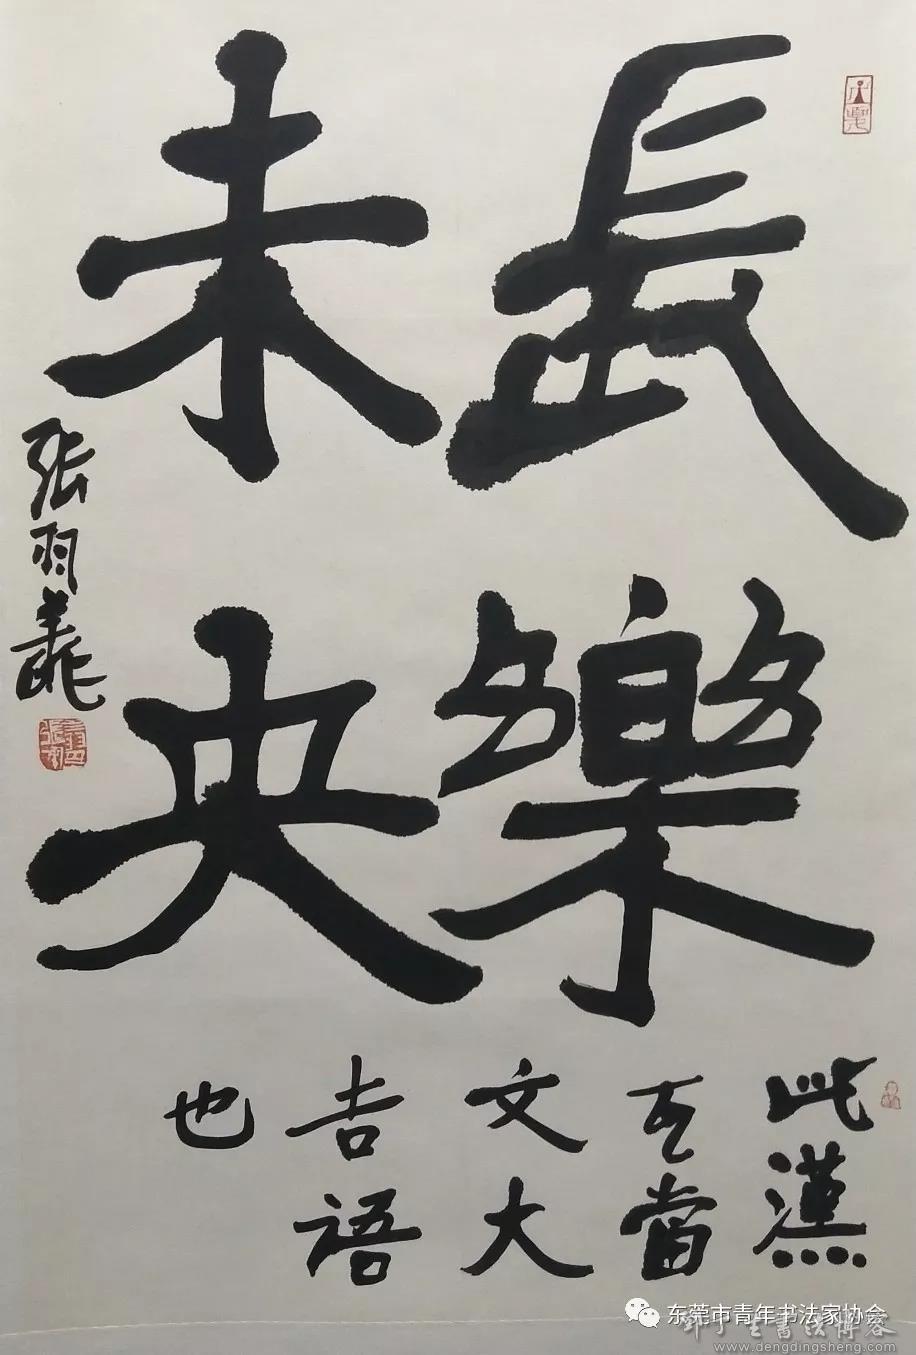 長樂
未央
此漢
瓦當
文大
吉語
也
张羽羲
东莞市青年书法家协会
邓丁生书法博客
www.dengdingsheng.com